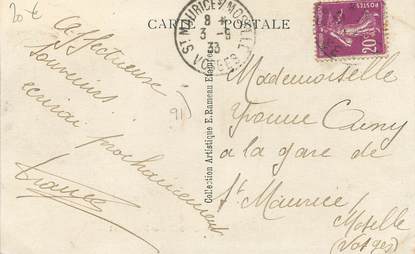 20 €
CARTE POSTALE
St MAURICE S/ MOSELLE
8
3 - 8
33
VOSGES
POSTES
20c
Affectueux
souvenirs
écrirai prochainement
91
Collection Artistique E. Rameau
Mademoiselle
Yvonne
a la gare de
St Maurice
Moselle
(Vosges)